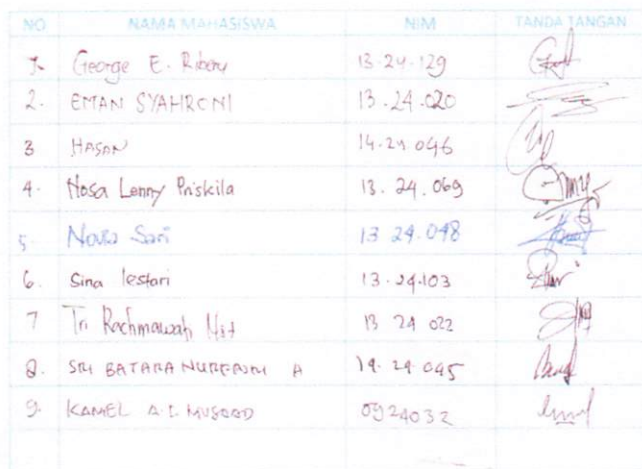 NO NAMA MAHASISWA NIM TANDA TANGAN
1. George E. Ribery 13-24-129
2. EMAN SYAHRONI 13-24-020
3 HASAN 14-24-046
4. Hosa Lenny Priskila 13.24.069
5. Novia Sari 13 24-048
6. Sina lestari 13-24-103
7 Tri Rachmawati 13 24 022
8. SRI BATARA A 14-24-045
9. KAMEL A.I. 0924032